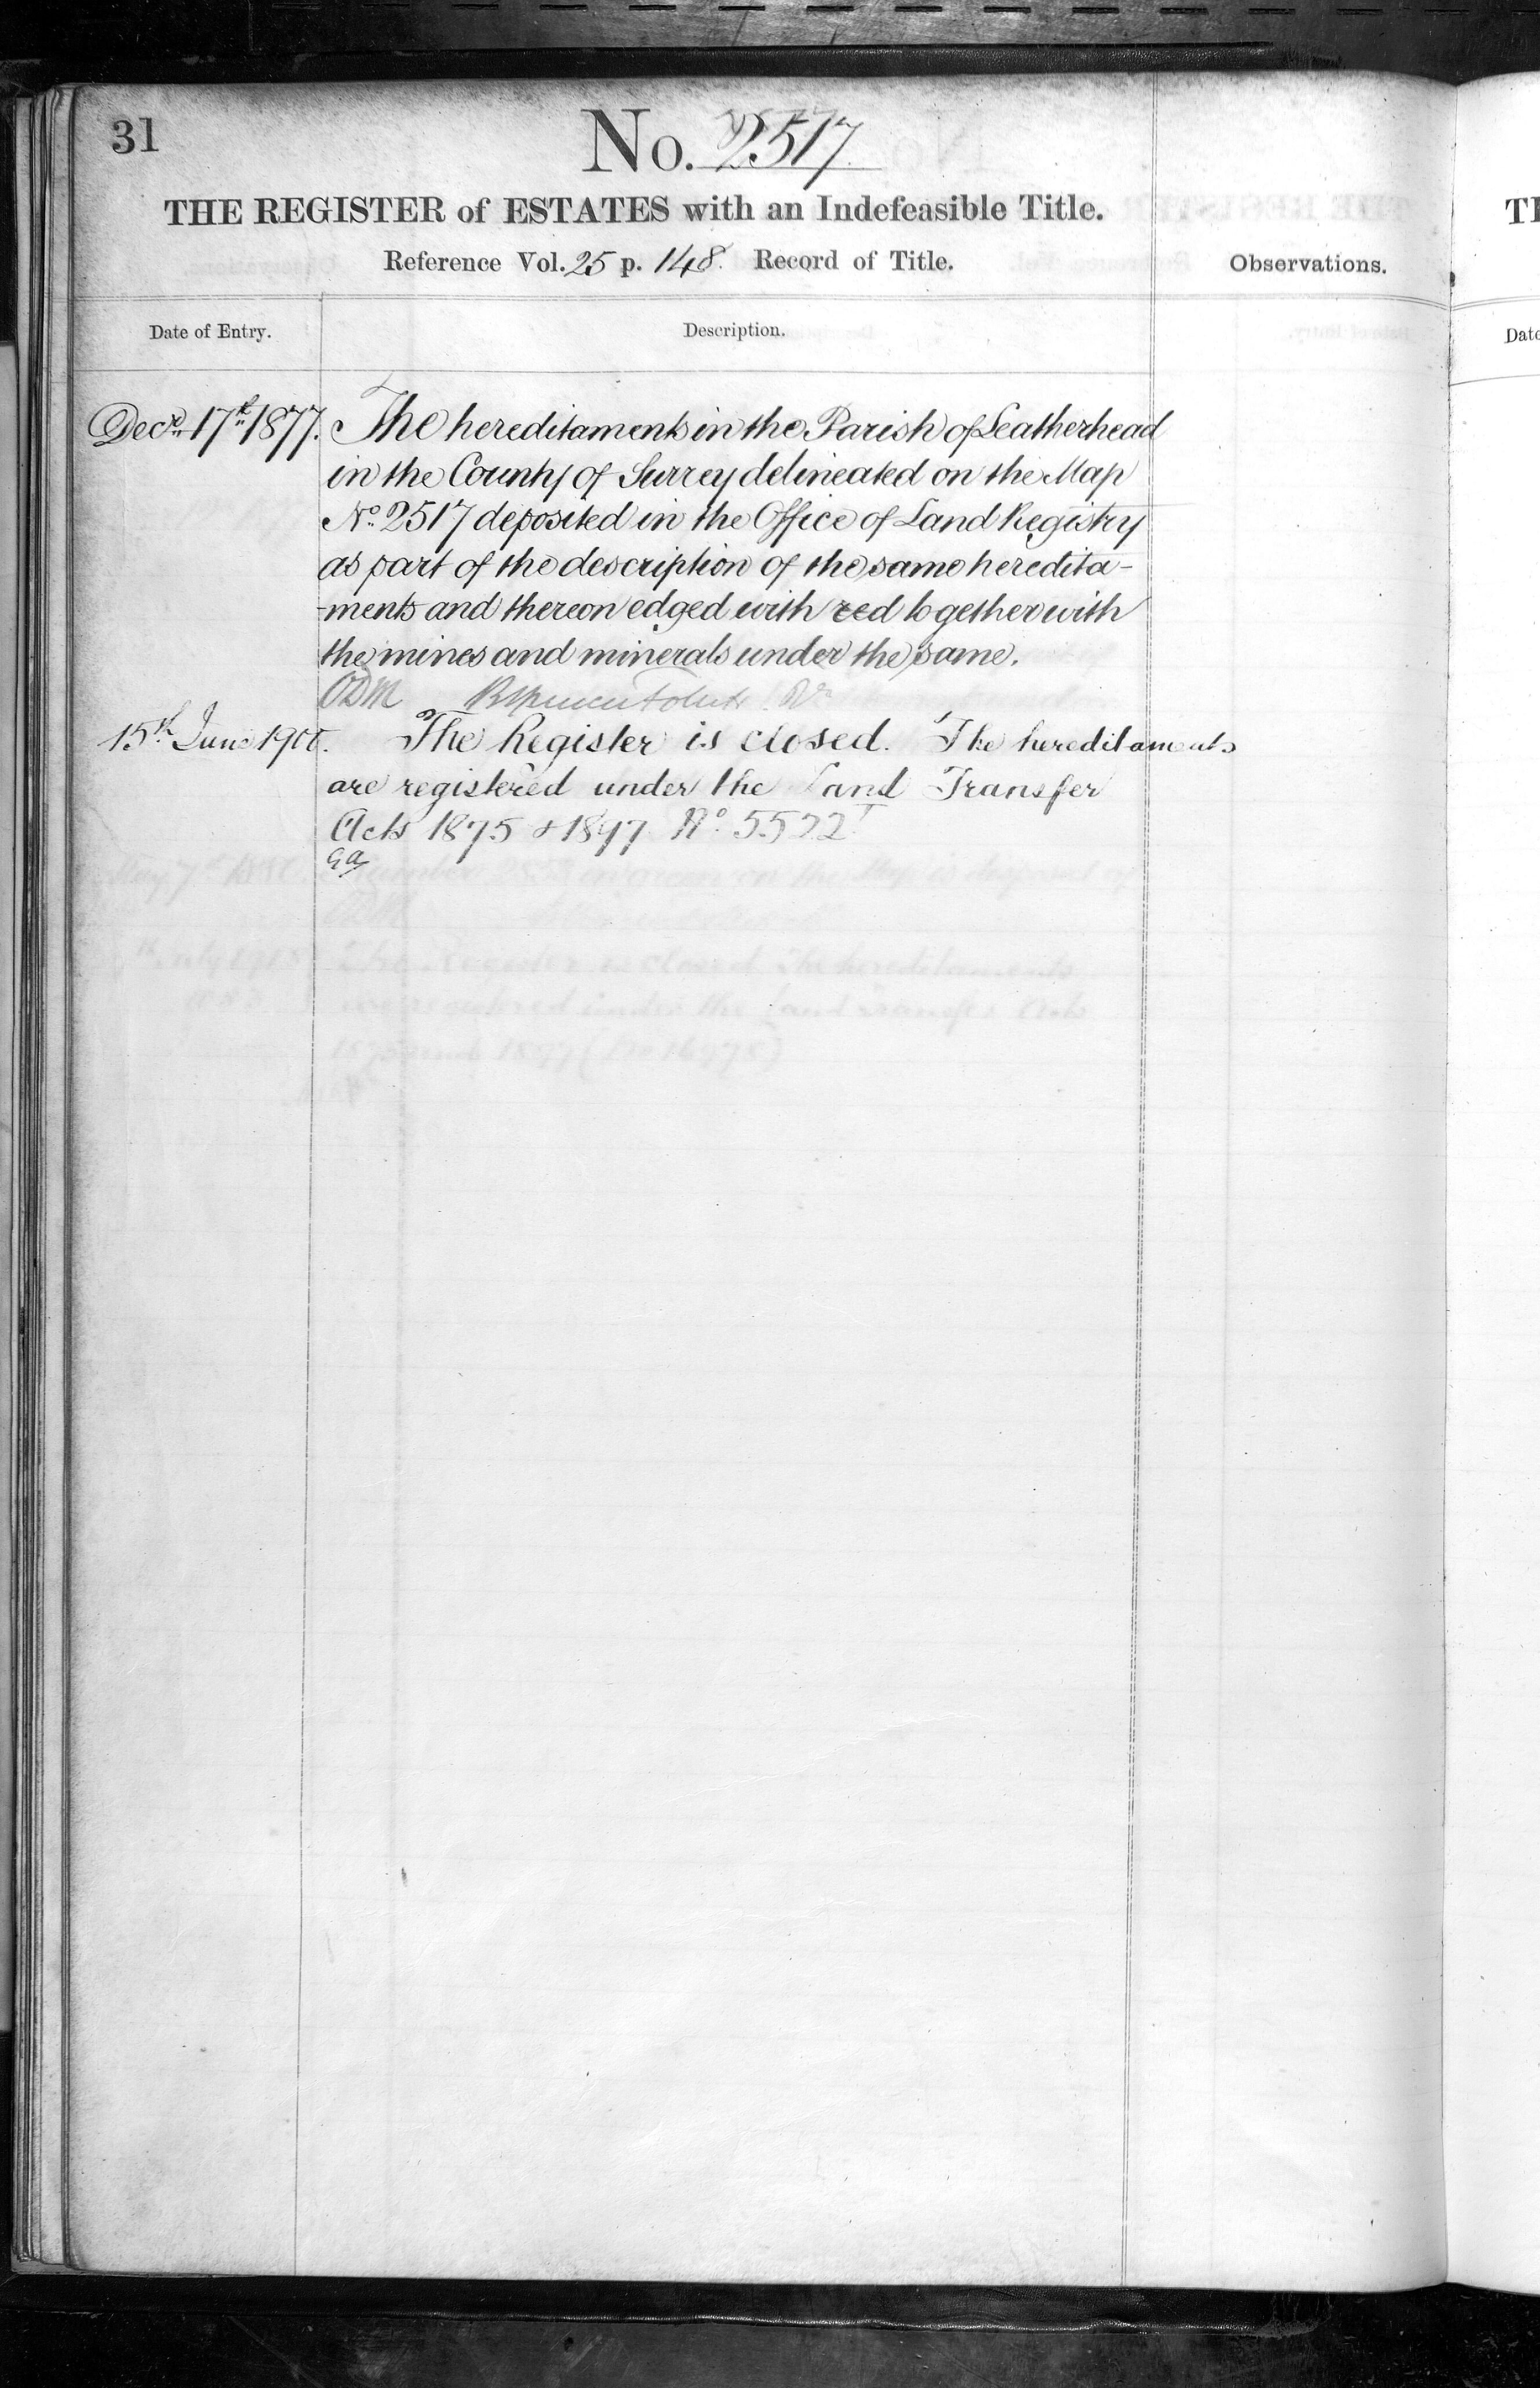 31
No. 2517
THE REGISTER of ESTATES with an Indefeasible Title.
Reference Vol. 25 p. 148. Record of Title.
Observations.
Date of Entry.
Description.
Decr. 17th 1877. The hereditaments in the Parish of Leatherhead
in the County of Surrey delineated on the Map
No. 2517 deposited in the Office of Land Registry
as part of the description of the same heredita-
-ments and thereon edged with red together with
the mines and minerals under the same.
ODM
15th June 190 The Register is closed. The hereditaments
are registered under the Land Transfer
Acts 1875 & 1897 No. 5522